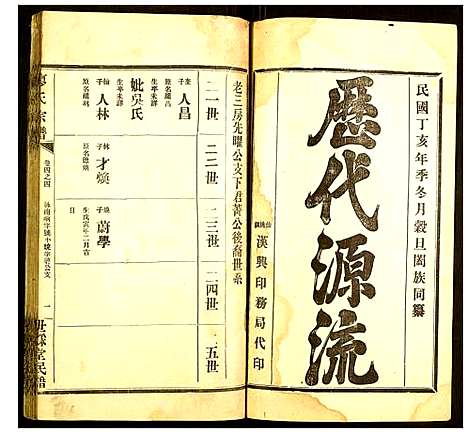 民國丁亥年季冬月穀旦闔族同纂
歷代源流
漢興印務局代印
老三房先曜公支下君菁公後裔世系
二一世
二二世
二三世
二四世
二五世
人昌
生卒未詳
妣吳氏
生卒未詳
人林
林子
才煥
煥子
蔚學
生戊寅年二月吉
日
氏宗譜
卷四之四
一